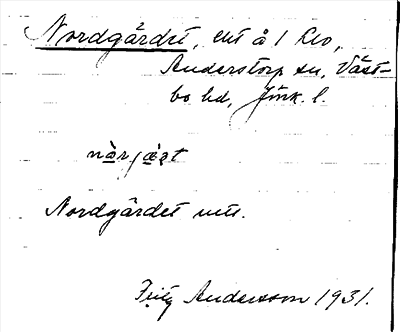 Nordgärdet, ett å 1 Leo,
Anderstorp sn, Väst-
bo hd, Jönk. l.
Nordgärdet utt.
Fritz Andersson 1931.